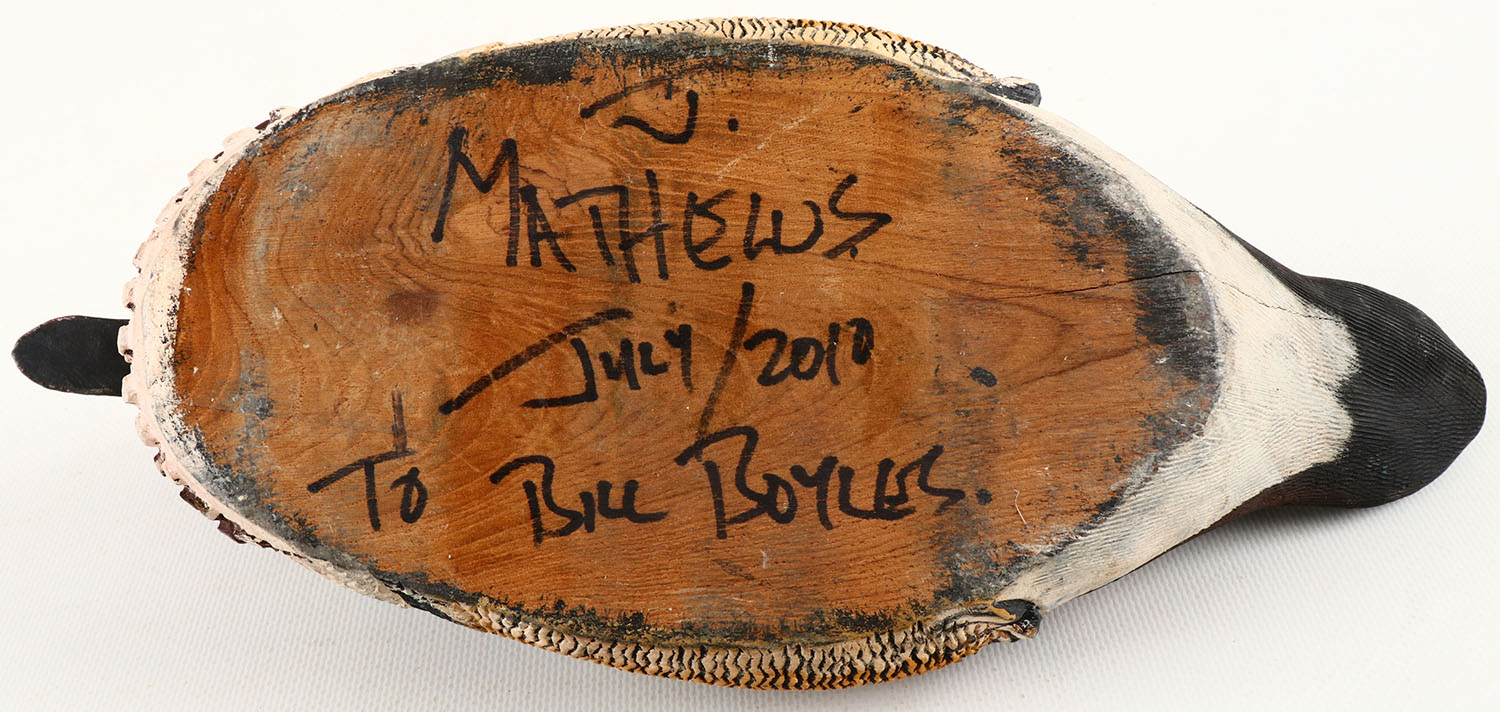 J.
MATHEWS
JULY/2010
TO BILL BOYLES.